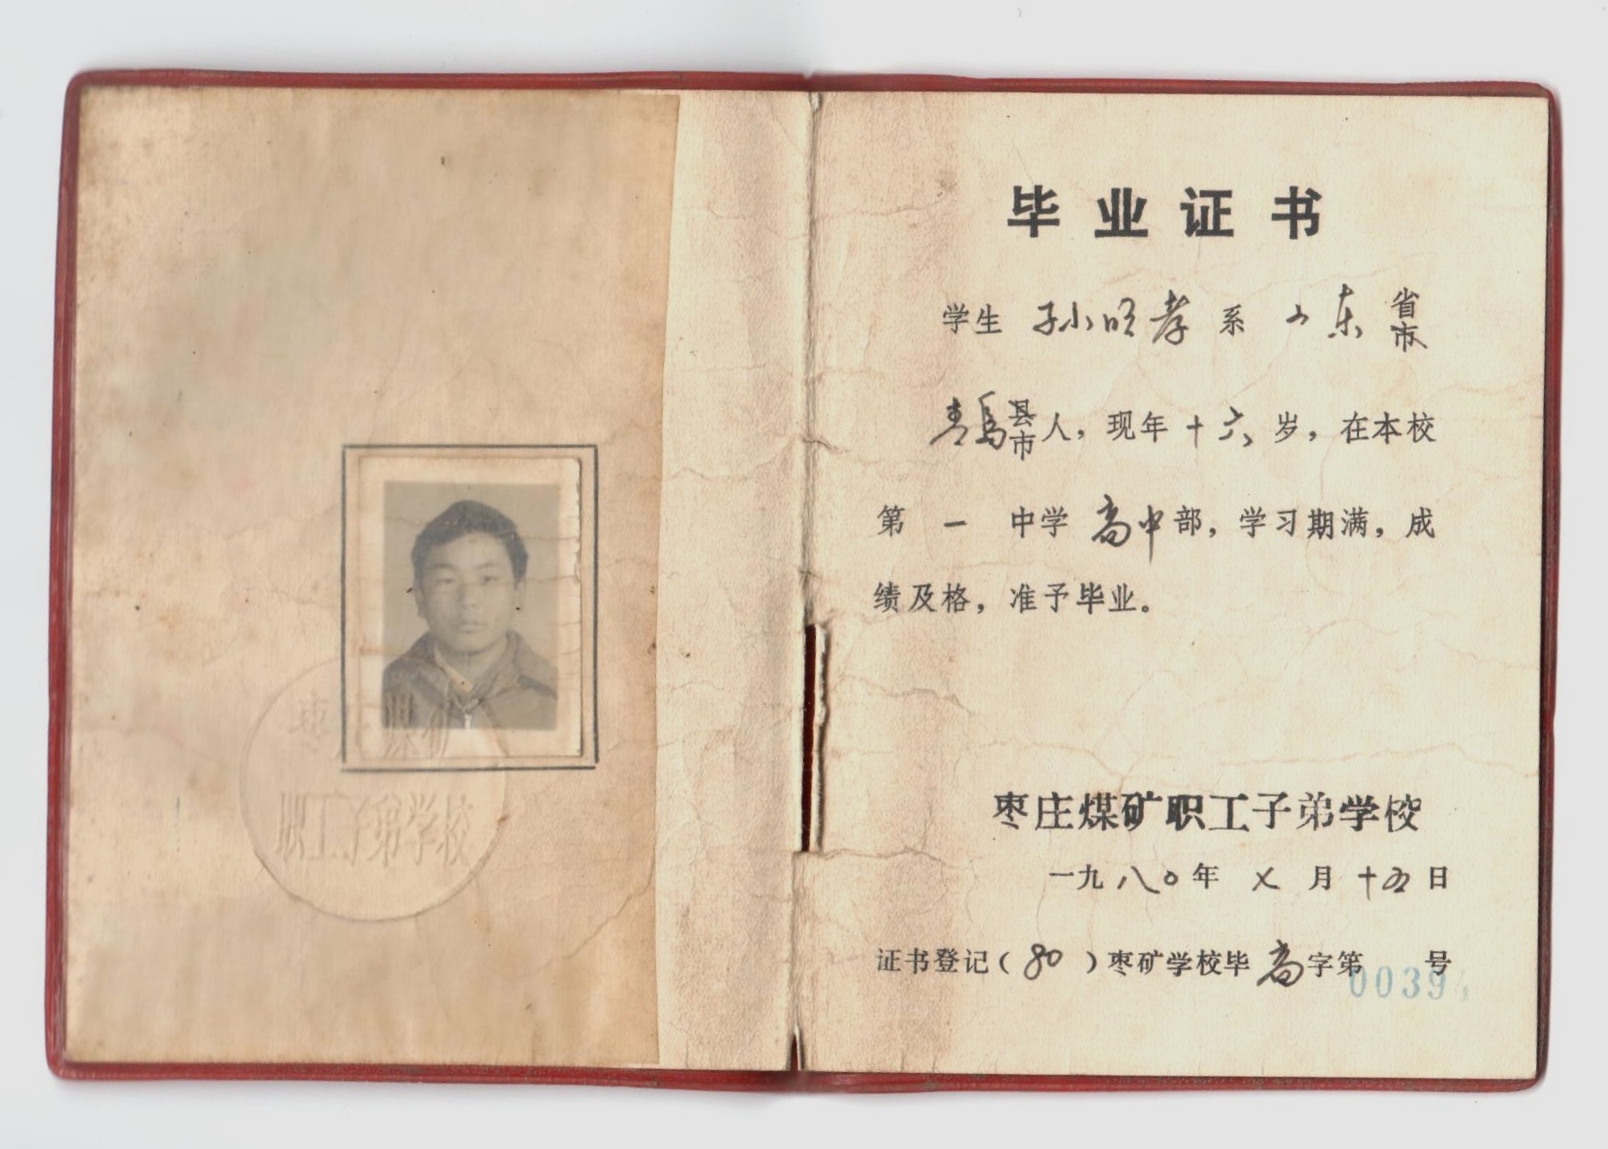 枣庄煤矿
职工子弟学校
毕业证书
学生 孙明孝 系 山东 省市
青岛 县市 人，现年 十六 岁，在本校
第 一 中学 高中 部，学习期满，成
绩及格，准予毕业。
枣庄煤矿职工子弟学校
一九八〇年 七 月 十五 日
证书登记（80）枣矿学校毕 高 字第 0039 号